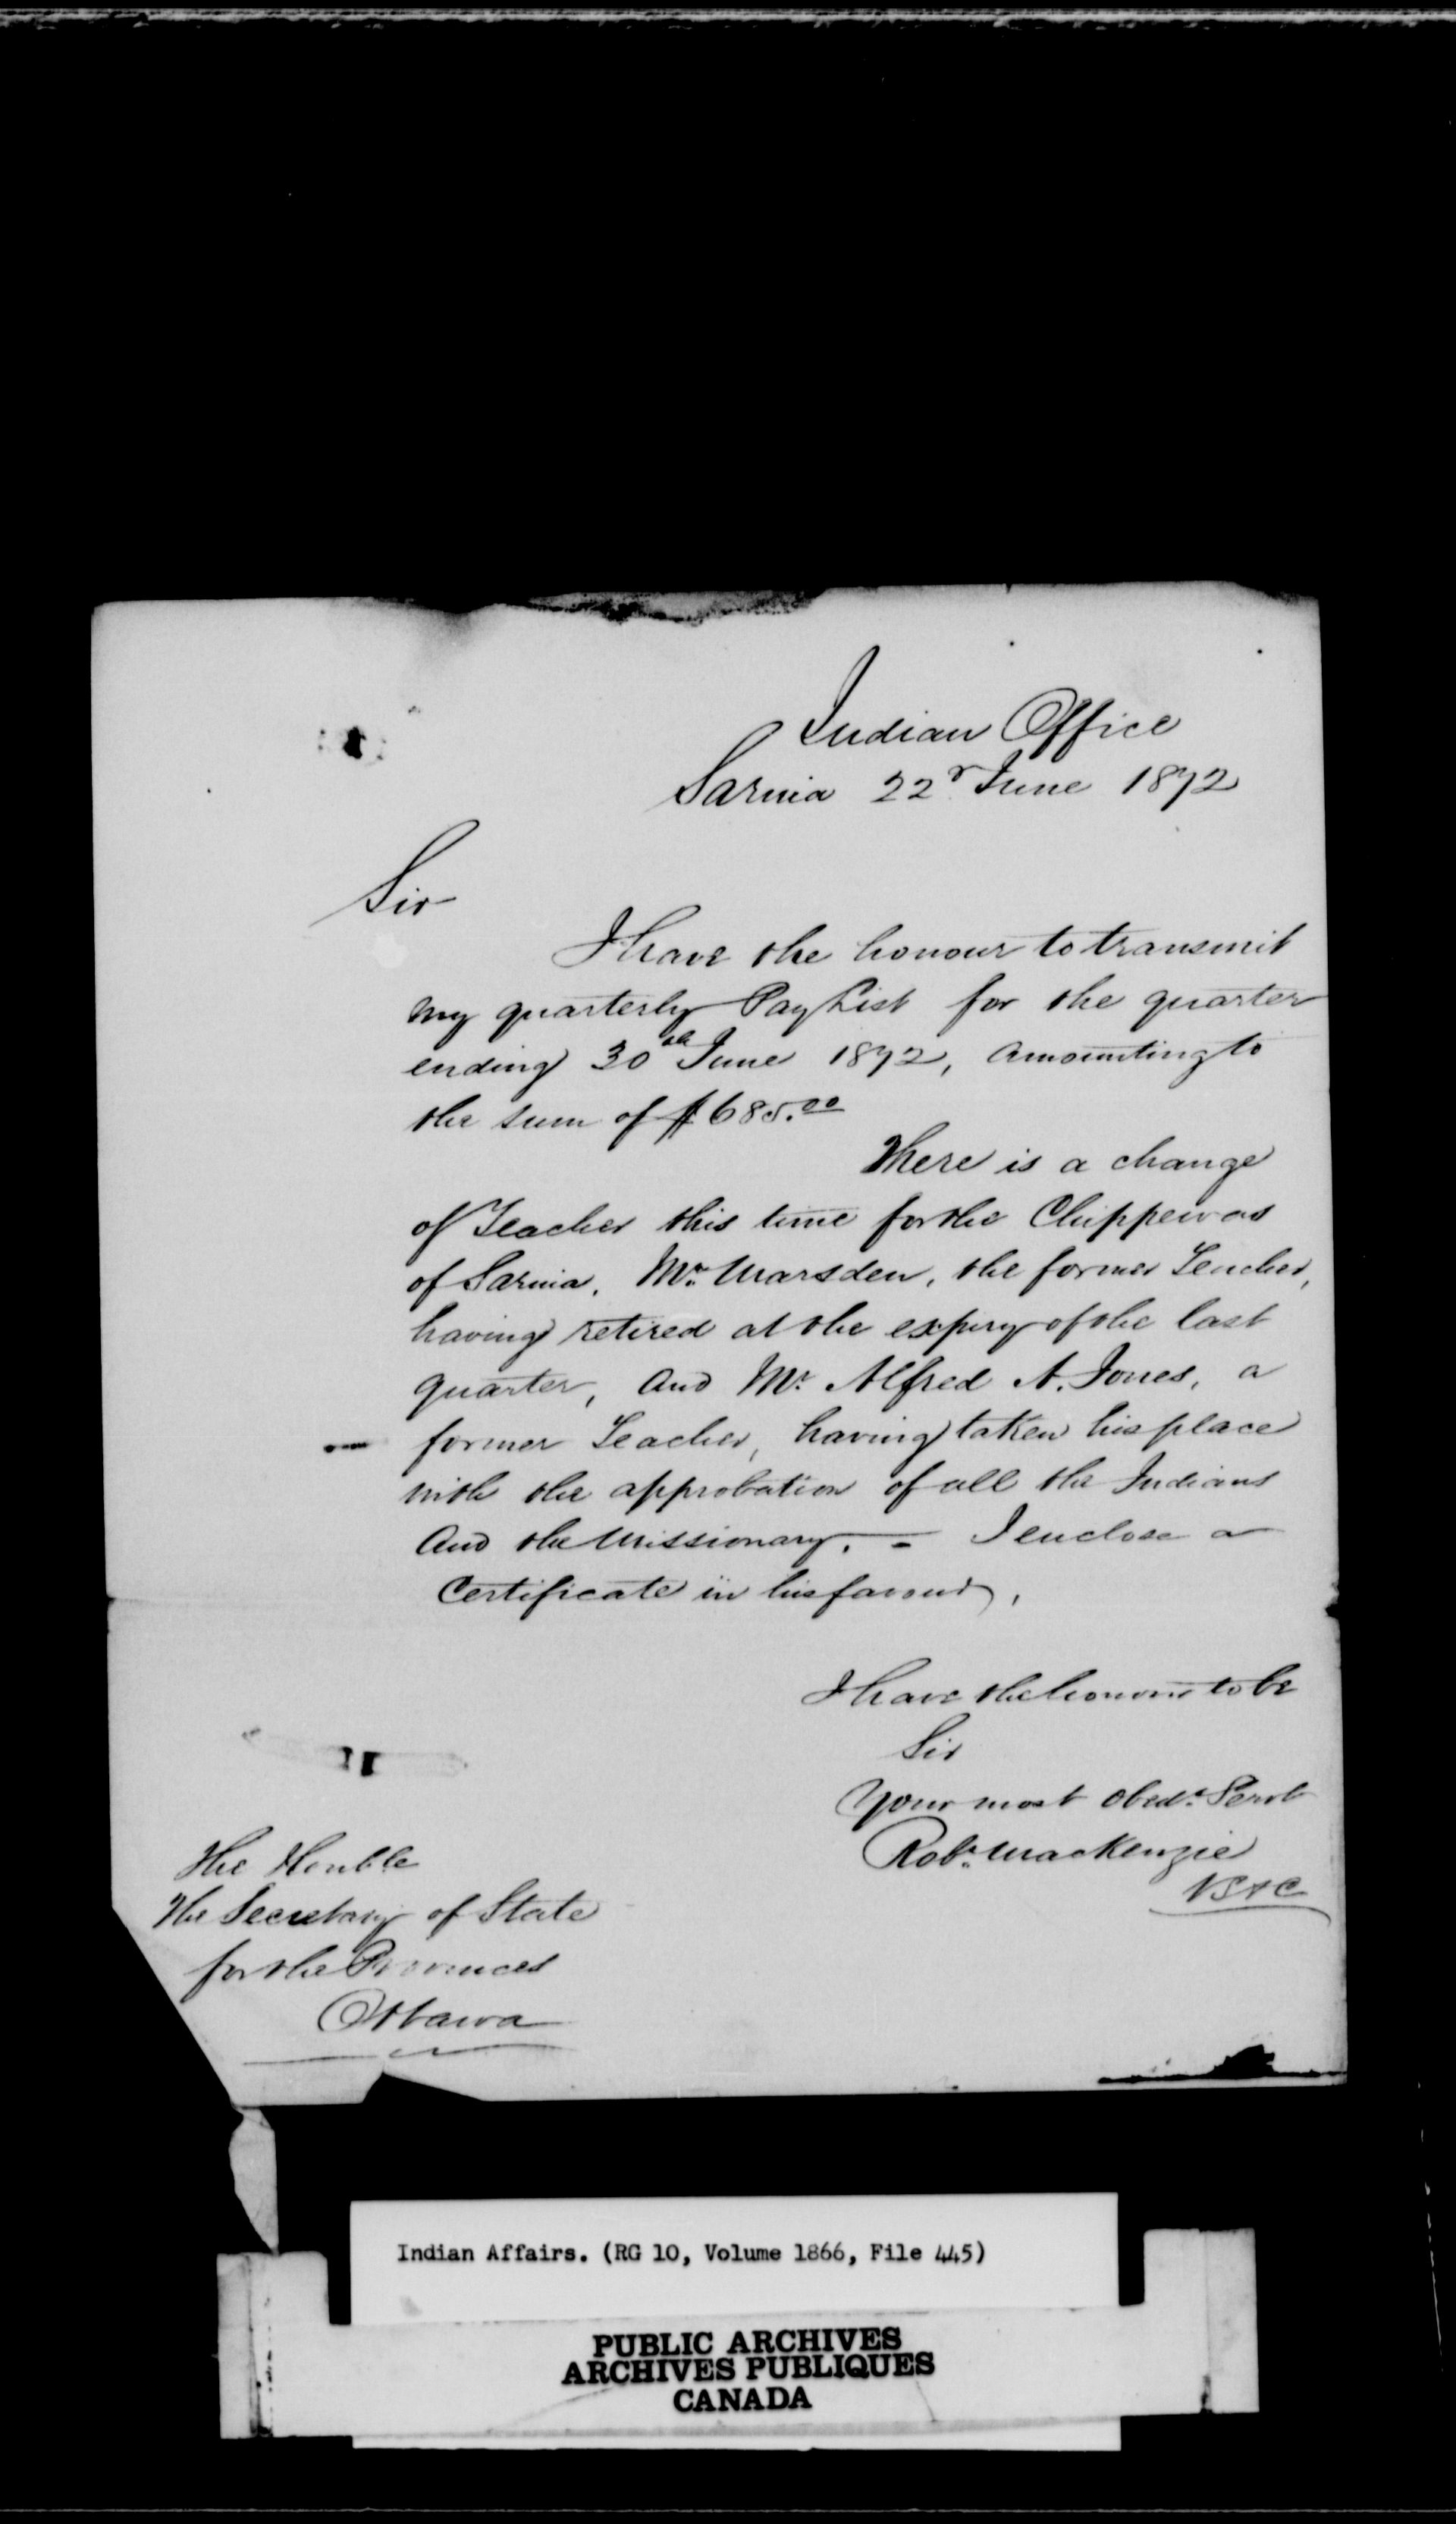 Indian Office
Sarnia 22d June 1872
Sir
I have the honour to transmit
my quarterly Pay List for the quarter
ending 30th June 1872, amounting to
the sum of $685.00
There is a change
of Teacher this time for the Chippewas
of Sarnia. Mr. Marsden, the former Teacher,
having retired at the expiry of the last
quarter, and Mr. Alfred A. Jones, a
former Teacher, having taken his place
with the approbation of all the Indians
and the Missionary. - I enclose a
Certificate in his favour,
I have the honour to be
Sir
Your most obedt. Servt
Robt. MacKenzie
The Honble
The Secretary of State
for the Provinces
Ottawa
Indian Affairs. (RG 10, Volume 1866, File 445)
PUBLIC ARCHIVES
ARCHIVES PUBLIQUES
CANADA